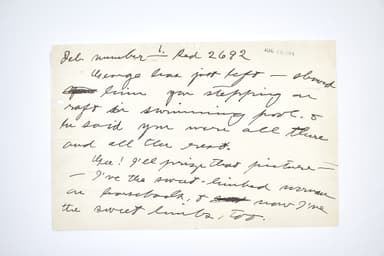 Tel. number — ! Red 2692
George has just left — showed
him you stepping on
raft in swimming pool. &
he said you were all there
and all the rest.
Gee! I'll prize that picture —
— I've the sweet-limbed woman
on horseback, & now I've
the sweet limbs, too.